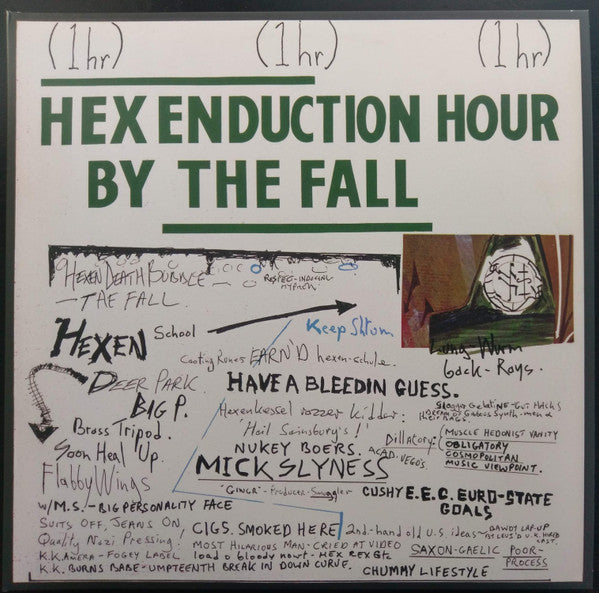 (1hr) (1hr) (1hr)
HEX ENDUCTION HOUR
BY THE FALL
HEXEN DEATH BUBBLE
— THE FALL.
HEXEN School
Keep Shtum
Casting Runes EARN'D hexen-schule.
Long Wurm
Gack-Roys.
DEER PARK
HAVE A BLEEDIN GUESS.
BIG P.
Hexenkessel rozzer kidder:
Brass Tripod.
"Hail Sainsbury's!"
Dillatory:
MUSCLE HEDONIST VANITY
OBLIGATORY
COSMOPOLITAN
MUSIC VIEWPOINT.
NUKEY BOERS.
ACAD. VEGO'S.
Soon Heal Up.
MICK SLYNESS
Flabby Wings
"GINGR"-Producer-Smuggler
CUSHY E.E.C. EURO-STATE
GOALS
W/M.S. - BIG PERSONALITY FACE
SUITS OFF, JEANS ON,
CIGS. SMOKED HERE
2nd-hand old U.S ideas-
Quality Nazi Pressing!
MOST HILARIOUS MAN-CRIED AT VIDEO
SAXON-GAELIC POOR-
PROCESS
- FOGEY LABEL
load o bloody nowt - HEX REX Gtr
K.K. BURNS BABE - UMPTEENTH BREAK IN DOWN CURVE.
CHUMMY LIFESTYLE